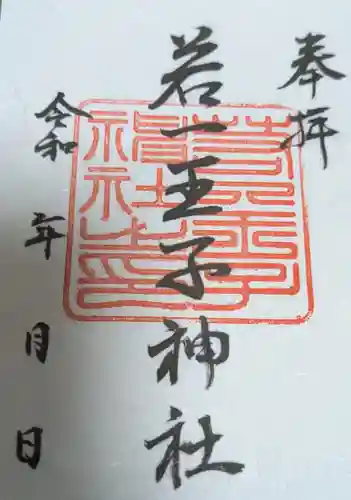 奉拝
若一王子神社
令和 年 月 日
若一王子神社之印